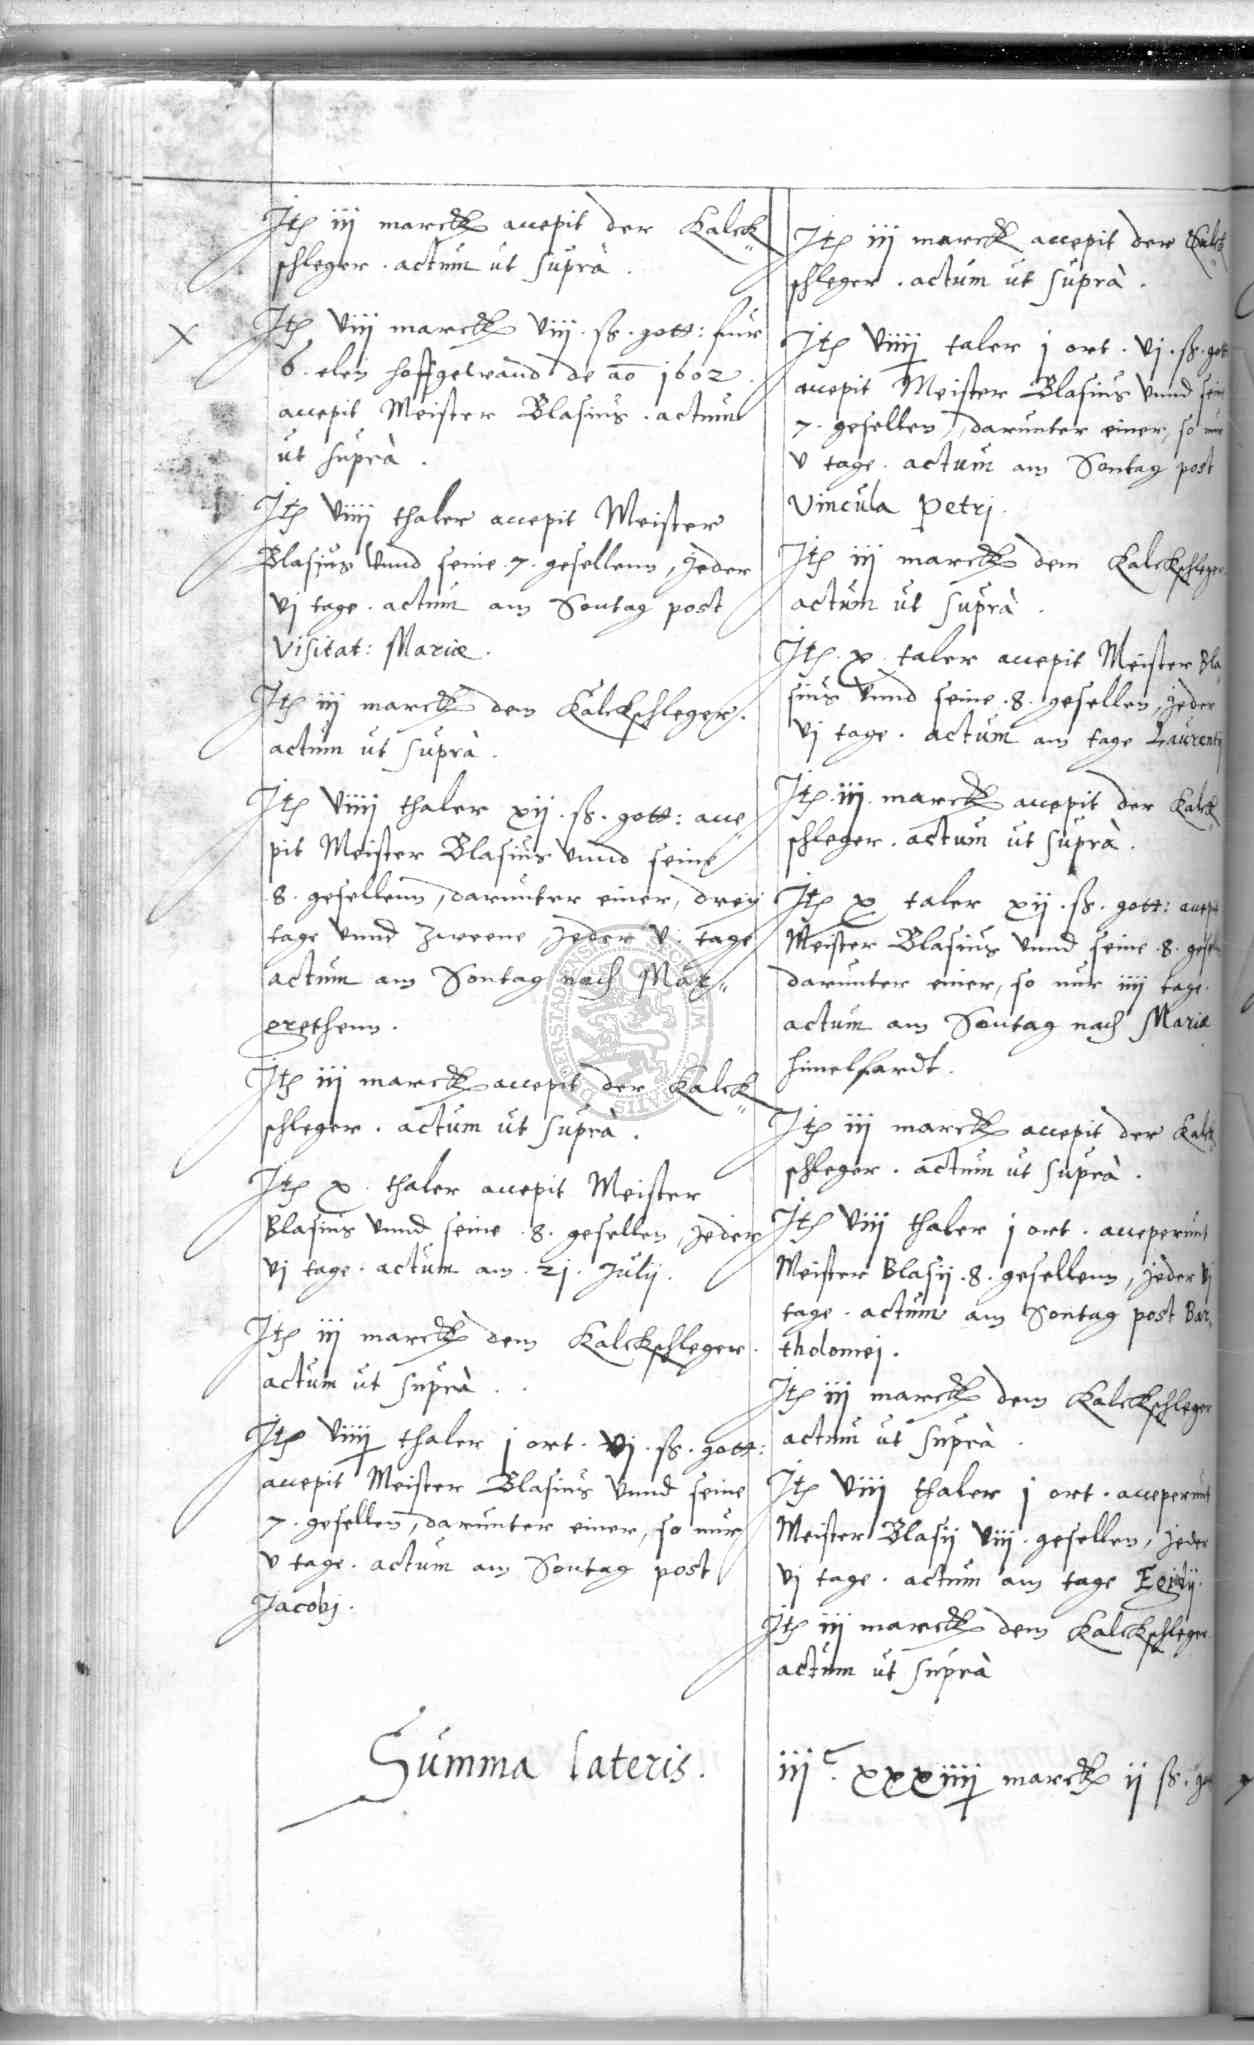 Jtem iij marck accepit der Kalck„
schleger . actum ut suprà .
X
Jtem viij marck viij . ß . gott: fur
6 . elen hoffgewand de ao 1602 .
accepit Meister Blasius . actum
ut suprà .
Jtem viiij thaler accepit Meister
Blasius vnnd seine .7. gesellenn, jeder
vj tage . actum am Sontag post
Visitat: Mariæ .
Jtem iij marck dem Kalckschleger .
actum ut suprà .
Jtem viiij thaler xij . ß . gott: acce„
pit Meister Blasius vnnd seine
.8. gesellenn, darunter einer, drey
tage vnnd zweene jeder v . tage
actum am Sontag nach Mar„
grethenn .
Jtem iij marck accepit der Kalck„
schleger . actum ut suprà .
Jtem x . thaler accepit Meister
Blasius vnnd seine .8. gesellen, jeder
vj tage . actum am . 21 . Julij .
Jtem iij marck dem Kalckschleger .
actum ut suprà .
Jtem viiij thaler j ort . vj . ß . gott:
accepit Meister Blasius vnnd seine
7 . gesellen, darunter einer, so nur
v tage . actum am Sontag post
Jacobj .
Summa lateris .
Jtem iij marck accepit der Kalck„
schleger . actum ut suprà .
Jtem viiij taler j ort . vj . ß . gott
accepit Meister Blasius vnnd sein
7 . gesellen, darunter einer, so nur
v tage . actum am Sontag post
Vincula Petrj .
Jtem iij marck dem Kalckschleger
actum ut suprà .
Jtem . x . taler accepit Meister Bla„
sius vnnd seine .8. gesellen, jeder
vj tage . actum am tage Laurentij
Jtem . iij . marck accepit der Kalck„
schleger . actum ut suprà .
Jtem x taler xij . ß . gott: accepit
Meister Blasius vnnd seine .8. gesellen
darunter einer, so nur iiij tage .
actum am Sontag nach Mariæ
himelfardt .
Jtem iij marck accepit der Kalck„
schleger . actum ut suprà .
Jtem viij thaler j ort . acceperunt
Meister Blasij .8. gesellenn, jeder vj
tage . actum am Sontag post Bar„
tholomej .
Jtem iij marck dem Kalckschleger
actum ut suprà .
Jtem viij thaler j ort . acceperunt
Meister Blasij viij . gesellen, jeder
vj tage . actum am tage Egidij .
Jtem iij marck dem Kalckschleger .
actum ut suprà
iij c . xxxiiij marck ij ß .